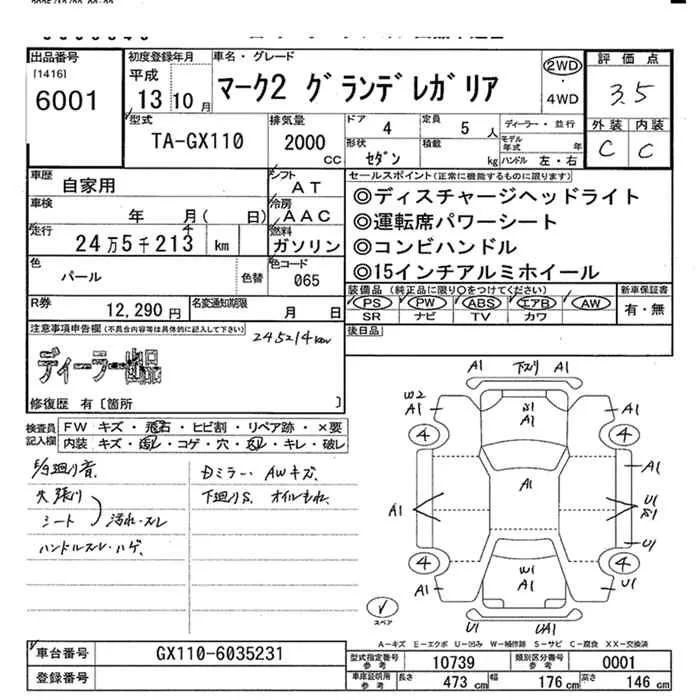 出品番号
[1416]
6001
初度登録年月
平成
13 10 月
車名・グレード
マーク2 グランデレガリア
2WD
4WD
評価点
3.5
外装 内装
C C
型式
TA-GX110
排気量
2000
CC
ドア 4
定員 5 人
形状 セダン
積載 kg
ディーラー・並行
モデル年式 年
ハンドル 左・右
車歴
自家用
シフト
AT
車検
年 月( 日)
冷房
AAC
走行
24万5千213 km
4
燃料
ガソリン
色
パール
色替
色コード
065
セールスポイント(正常に機能するものに限ります)
◎ディスチャージヘッドライト
◎運転席パワーシート
◎コンビハンドル
◎15インチアルミホイール
装備品 (純正品に限り○をつけてください)
PS PW ABS エアB AW
SR ナビ TV カワ
新車保証書
有・無
後日品
R券
12,290 円
名変通知期限
月 日
注意事項申告欄(不具合内容等は具体的に記入して下さい)
245214km
ディーラー出品
修復歴 有〔箇所 〕
検査員記入欄
FW キズ・飛石・ヒビ割・リペア跡・×要
内装 キズ・汚レ・コゲ・穴・スレ・キレ・破レ
天張り
シート
汚れ・スレ
ハンドルスレ・ハゲ、
Dミラー・AWキズ
下廻りS、オイルもれ、
A1 下スリ A1
W2
A1
A1
A1
4
4
A1
A1
A1
U1
U1
4
4
W1
A1
A1
U1
U1
UA1
スペア
A-キズ E-エクボ U-凹み W-補修跡 S-サビ C-腐食 XX-交換済
車台番号
GX110-6035231
登録番号
型式指定番号 参考
10739
類別区分番号 参考
0001
車庫証明用 参考
長さ 473 cm
幅 176 cm
高さ 146 cm